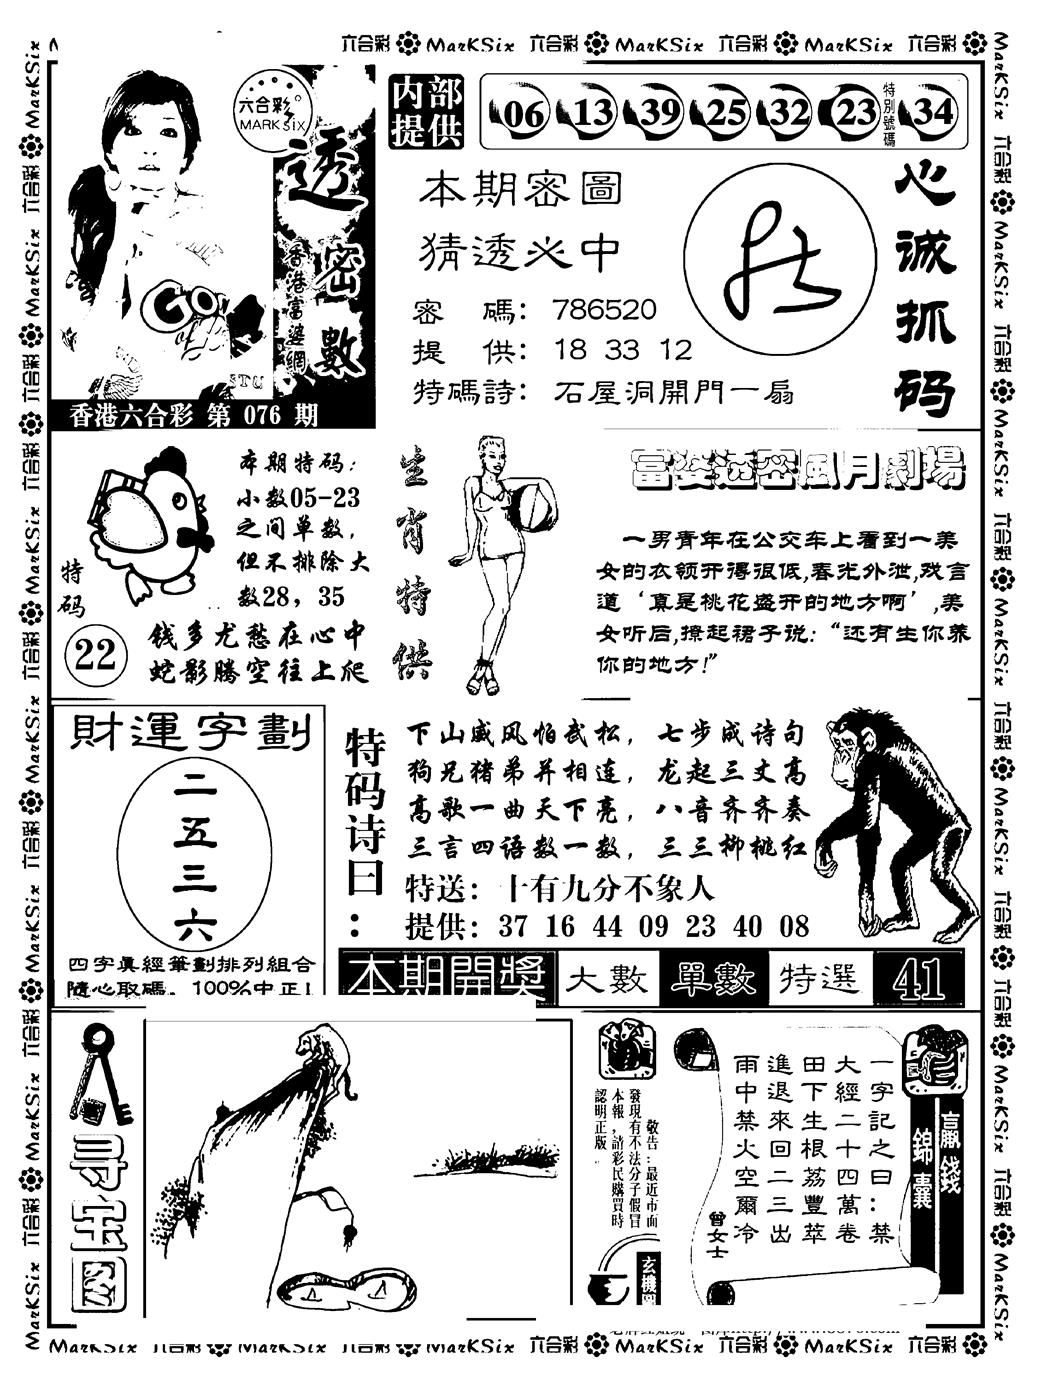 六合彩 MarKSix 六合彩 MarKSix 六合彩 MarKSix 六合彩
六合彩
MARK SIX
透密數
香港富婆網
香港六合彩 第 076 期
内部提供
06 13 39 25 32 23 特別號碼 34
本期密圖
猜透必中
密 碼：786520
提 供：18 33 12
特碼詩：石屋洞開門一扇
心诚抓码
本期特码：
小数05-23
之间单数，
但不排除大
数28，35
特码
22
钱多尤愁在心中
蛇影腾空往上爬
生肖特供
富婆透密風月劇場
一男青年在公交车上看到一美
女的衣领开得很低,春光外泄,戏言
道‘真是桃花盛开的地方啊’,美
女听后,撩起裙子说：“还有生你养
你的地方!”
財運字劃
二五三六
四字真經筆劃排列組合
隨心取碼。100%中正!
特码诗曰：
下山威风怕武松，七步成诗句
狗兄猪弟并相连，龙起三丈高
高歌一曲天下亮，八音齐齐奏
三言四语数一数，三三柳桃红
特送：十有九分不象人
提供：37 16 44 09 23 40 08
本期開獎 大數 單數 特選 41
寻宝图
敬告:最近市面
發現有不法分子假冒
本報,請彩民購買時
認明正版。
玄機圖
贏錢錦囊
一字記之曰：禁
大經二十四萬卷
田下生根荔豐萃
進退來回二三出
雨中禁火空爾冷
曾女士
MarKSix 六合彩 MarKSix 六合彩 MarKSix 六合彩 MarKSix 六合彩 MarKSix